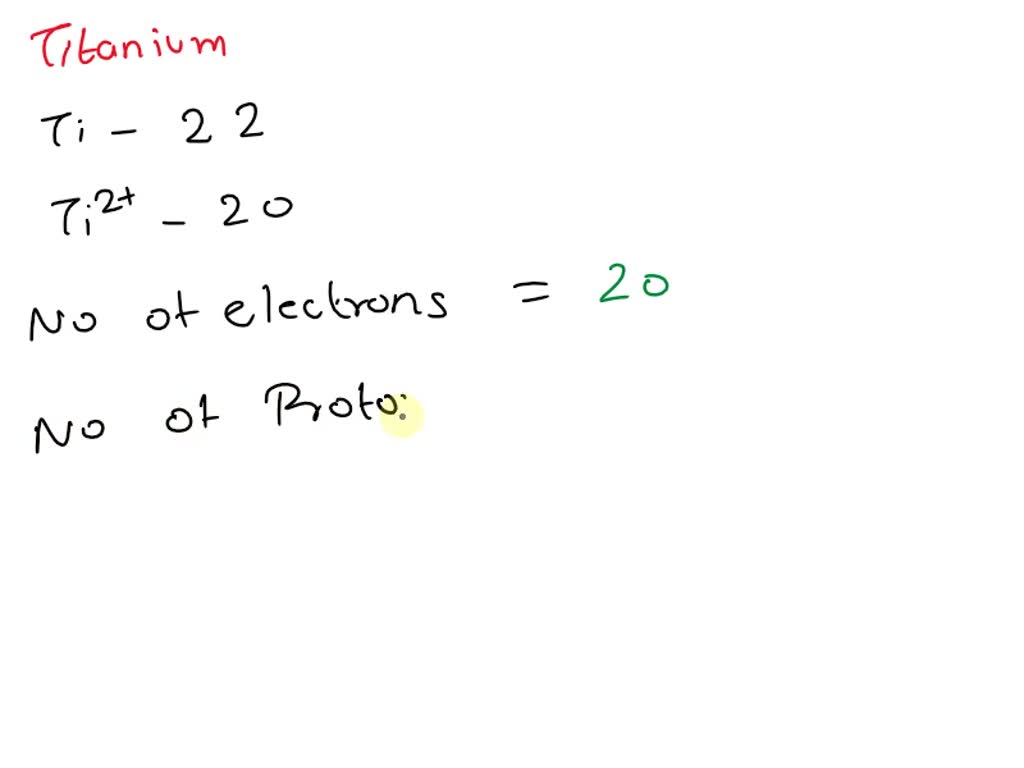 Titanium
Ti - 22
Ti2+ - 20
No of electrons = 20
No of Proto